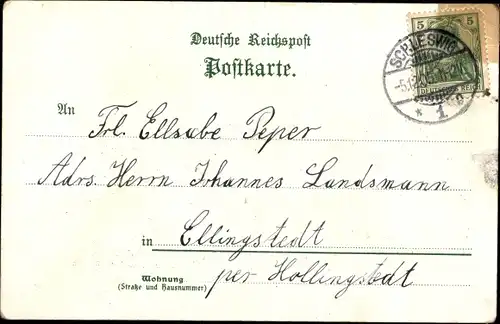 Deutsche Reichspost
Postkarte.
5 5
SCHLESWIG
DEUTSCHES REICH
* 1
An
Frl. Ellsabe Peper
Adrs. Herrn Johannes Landsmann
in Ellingstedt
Wohnung
(Straße und Hausnummer)
per Hollingstedt